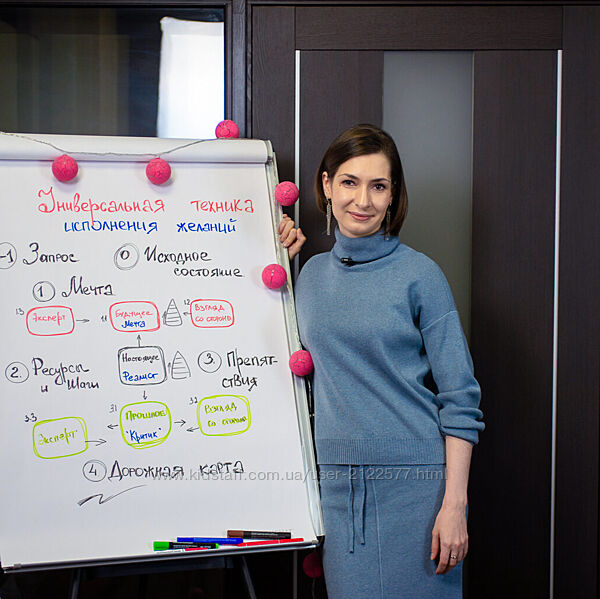 Универсальная техника
исполнения желаний
-1 Запрос
0 Исходное
состояние
1 Мечта
1.3 Эксперт
1.1 Будущее
Мечта
1.2 Взгляд
со стороны
2. Ресурсы
и Шаги
Настоящее
Реалист
3. Препят-
ствия
3.3 Эксперт
3.1 Прошлое
"Критик"
3.2 Взгляд
со стороны
4 Дорожная карта
www.kidstaff.com.ua/user-2122577.html